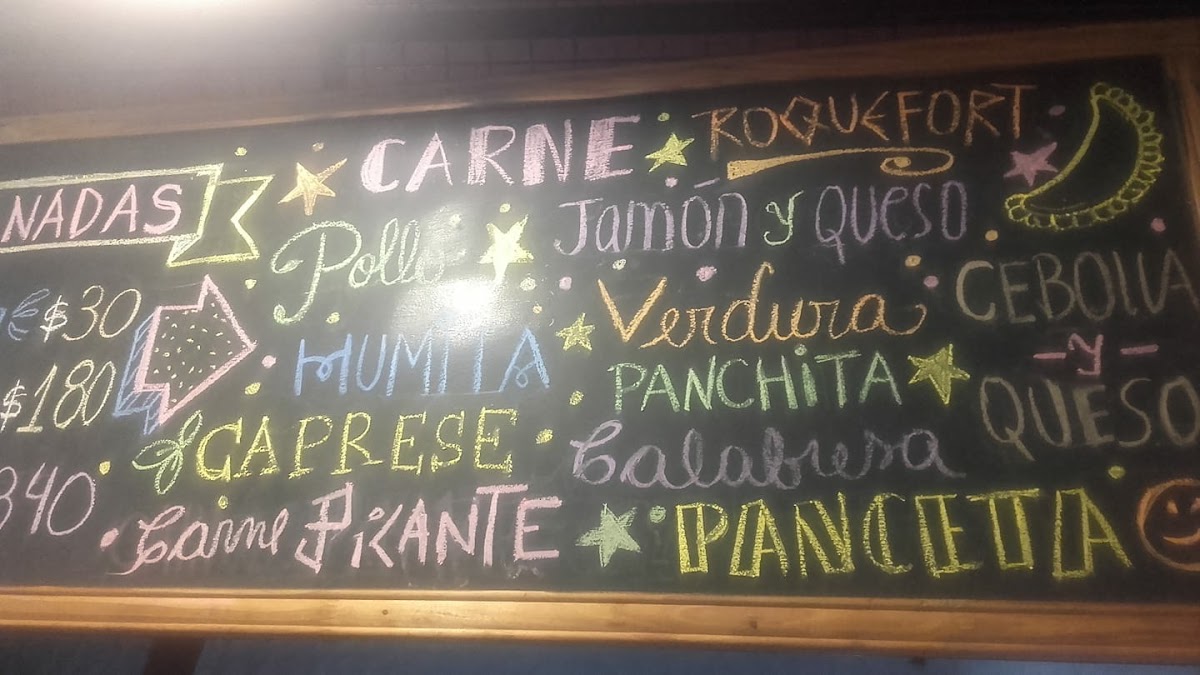 NADAS
$30
$180
340
CARNE
ROQUEFORT
Pollo
Jamón y QUESO
HUMITA
Verdura
CEBOLLA
-y-
QUESO
CAPRESE
PANCHITA
Calabresa
Carne PiKANTE
PANCETTA